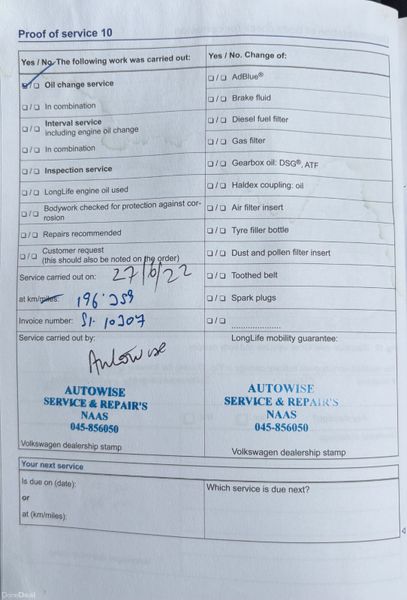 Proof of service 10
Yes / No. The following work was carried out:
Yes / No. Change of:
☑/☐ Oil change service
☐/☐ In combination
☐/☐ Interval service
including engine oil change
☐/☐ In combination
☐/☐ Inspection service
☐/☐ LongLife engine oil used
☐/☐ Bodywork checked for protection against cor-
rosion
☐/☐ Repairs recommended
☐/☐ Customer request
(this should also be noted on the order)
☐/☐ AdBlue®
☐/☐ Brake fluid
☐/☐ Diesel fuel filter
☐/☐ Gas filter
☐/☐ Gearbox oil: DSG®, ATF
☐/☐ Haldex coupling: oil
☐/☐ Air filter insert
☐/☐ Tyre filler bottle
☐/☐ Dust and pollen filter insert
☐/☐ Toothed belt
☐/☐ Spark plugs
☐/☐ ......................
Service carried out on: 27/6/22
at km/miles: 196'259
Invoice number: SI-10207
Service carried out by:
Autowise
AUTOWISE
SERVICE & REPAIR'S
NAAS
045-856050
Volkswagen dealership stamp
LongLife mobility guarantee:
AUTOWISE
SERVICE & REPAIR'S
NAAS
045-856050
Volkswagen dealership stamp
Your next service
Is due on (date):
or
at (km/miles):
Which service is due next?
DoneDeal